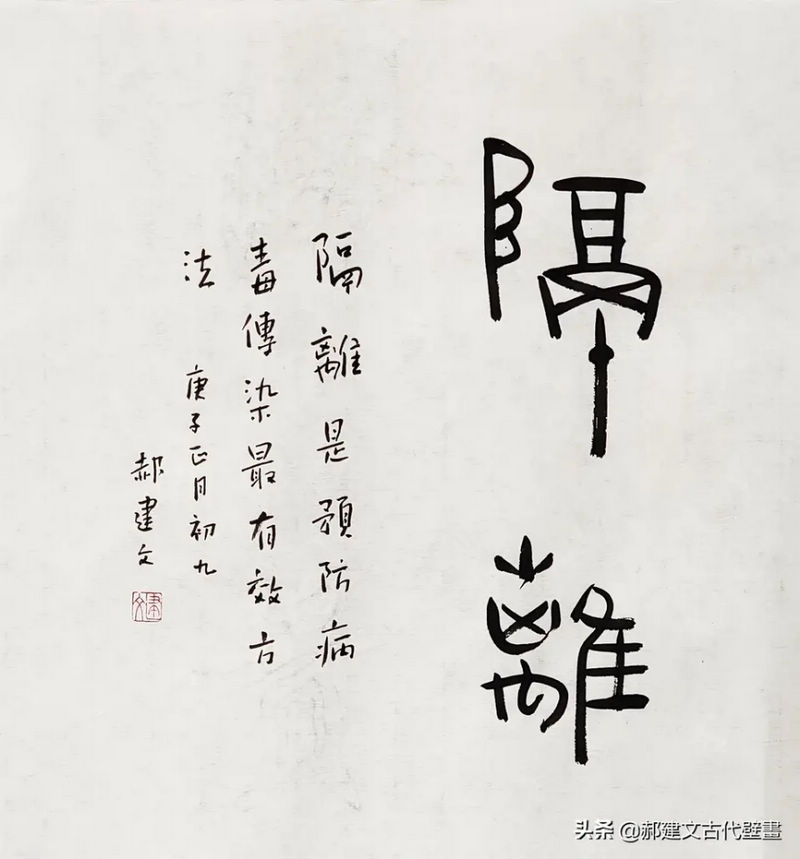 隔離
隔離是預防病
毒傳染最有效方
法
庚子正月初九
郝建文
建文
头条 @郝建文古代壁畫